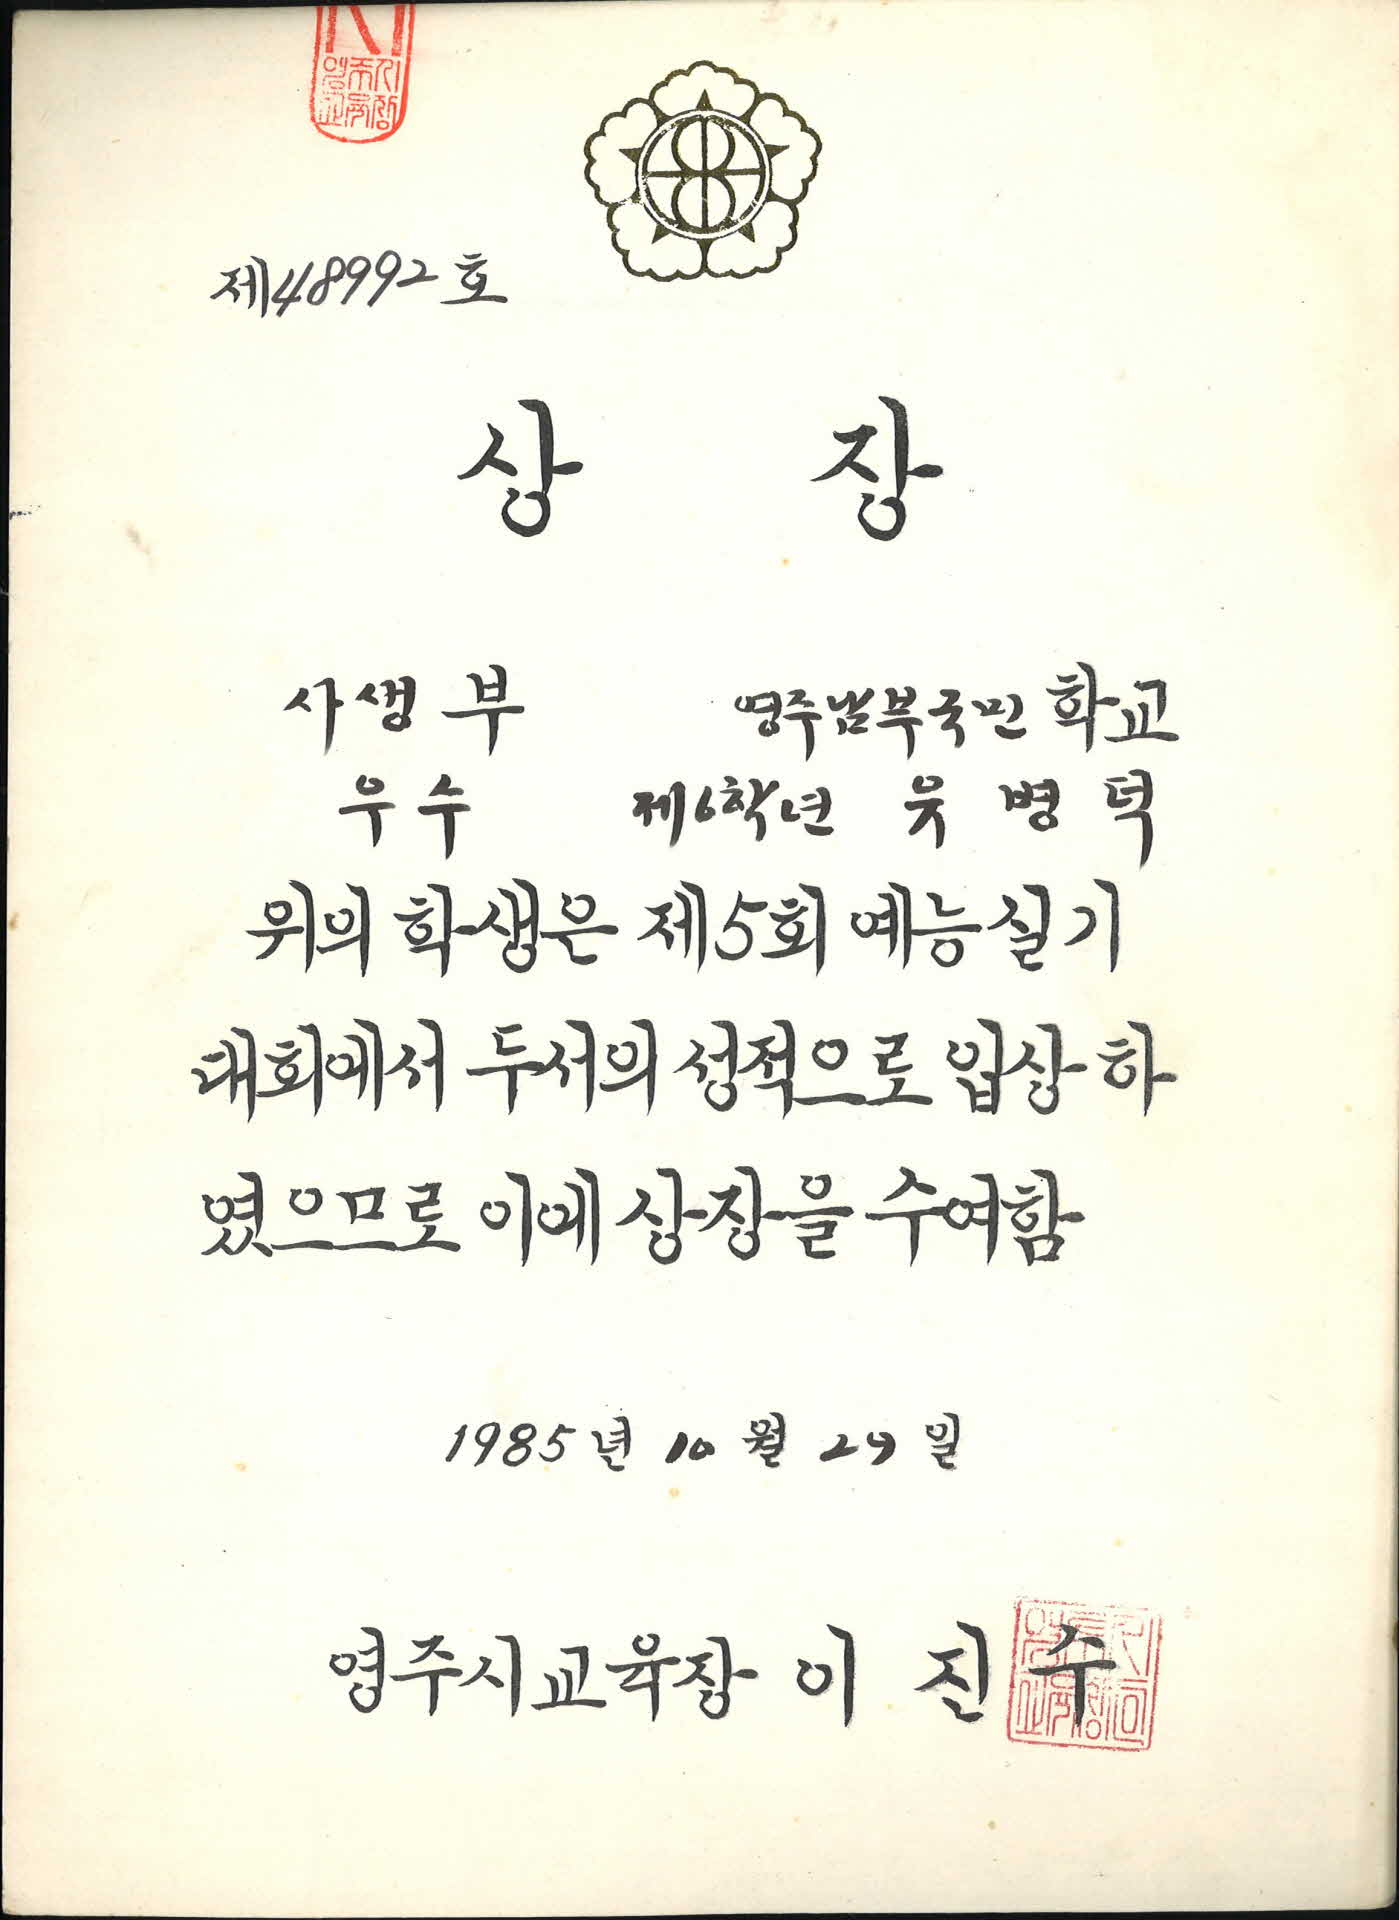 영주시
교육청
제48992호
상 장
사생부 영주남부국민학교
우수 제6학년 윳병덕
위의 학생은 제5회 예능실기
대회에서 두서의 성적으로 입상하
였으므로 이에 상장을 수여함
1985년 10월 29일
영주시교육장 이진수